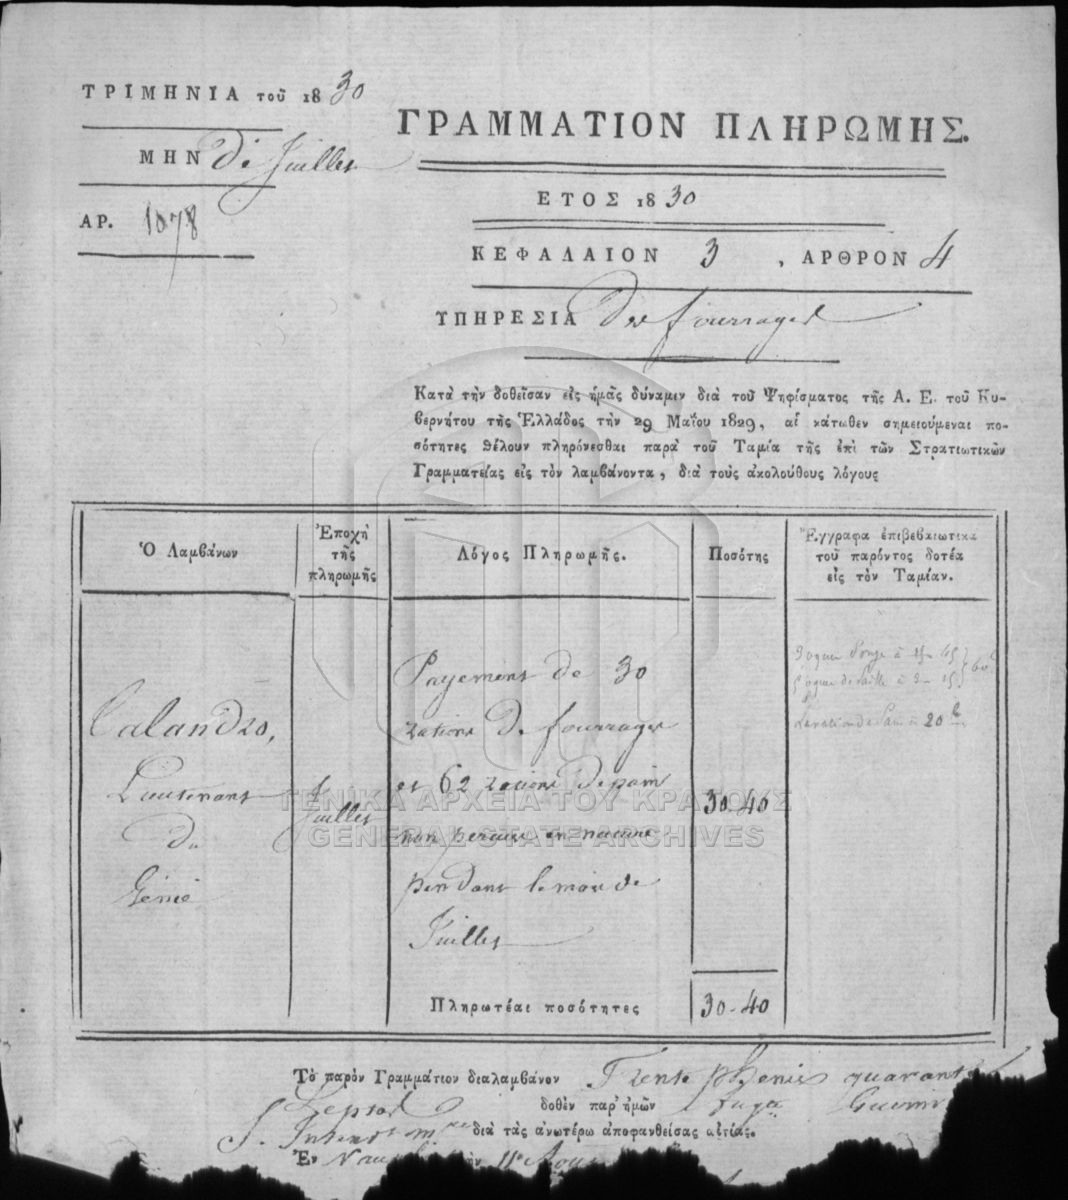 ΤΡΙΜΗΝΙΑ τοῦ 1830
ΜΗΝ de Juillet
ΑΡ. 1078
ΓΡΑΜΜΑΤΙΟΝ ΠΛΗΡΩΜΗΣ.
ΕΤΟΣ 1830
ΚΕΦΑΛΑΙΟΝ 3 , ΑΡΘΡΟΝ 4
ΥΠΗΡΕΣΙΑ des fourrages
Κατὰ τὴν δοθεῖσαν εἰς ἡμᾶς δύναμιν διὰ τοῦ Ψηφίσματος τῆς Α. Ε. τοῦ Κυ-
βερνήτου τῆς Ἑλλάδος τὴν 29 Μαΐου 1829, αἱ κάτωθεν σημειούμεναι πο-
σότητες θέλουν πληρόνεσθαι παρὰ τοῦ Ταμία τῆς ἐπὶ τῶν Στρατιωτικῶν
Γραμματείας εἰς τὸν λαμβάνοντα, διὰ τοὺς ἀκολούθους λόγους
Ὁ Λαμβάνων
Ἐποχὴ
τῆς
πληρωμῆς
Λόγος Πληρωμῆς.
Ποσότης
Ἔγγραφα ἐπιβεβαιωτικὰ
τοῦ παρόντος δοτέα
εἰς τὸν Ταμίαν.
Calandro,
Lieutenant
du
Génie
Juillet
Payement de 30
rations de fourrages
et 62 rations de pain
non perçues en nature
pendant le mois de
Juillet
30-40
Πληρωτέαι ποσότητες
30-40
ΓΕΝΙΚΑ ΑΡΧΕΙΑ ΤΟΥ ΚΡΑΤΟΥΣ
GENERAL STATE ARCHIVES
Τὸ παρὸν Γραμμάτιον διαλαμβάνον Trente phenix quarante
Lepta δοθὲν παρ' ἡμῶν
S. Intendant διὰ τὰς ἀνωτέρω ἀποφανθείσας αἰτίας.
Ἐν